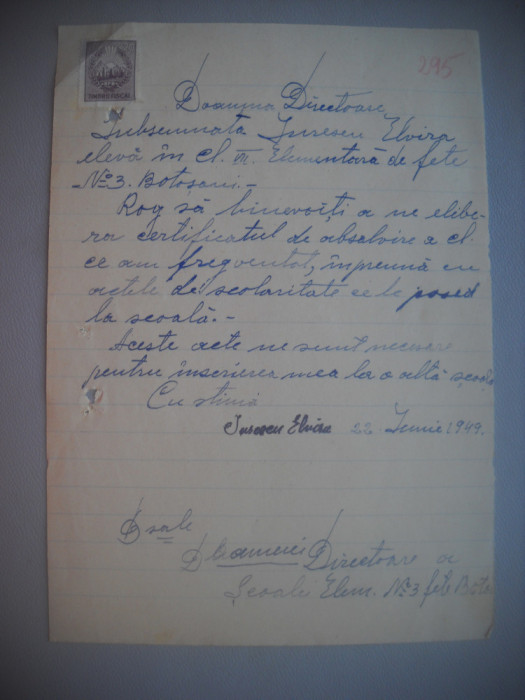 295
Doamna Directoare,
Subsemnata Elvira
elevă în cl. VII. Elementară de fete
No 3. Botoșani.-
Rog să binevoiți a ne elibe-
ra certificatul de absolvire a cl.
ce am freqventat, împreună cu
actele de școlaritate ce le posed
la școală.-
Aceste acte ne sunt necesare
pentru înscrierea mea la o altă școală
Cu stimă
Elvira 22 Iunie 1949.
D sale
Doamnei Directoare a
Școalei Elem. No 3 fete Boto